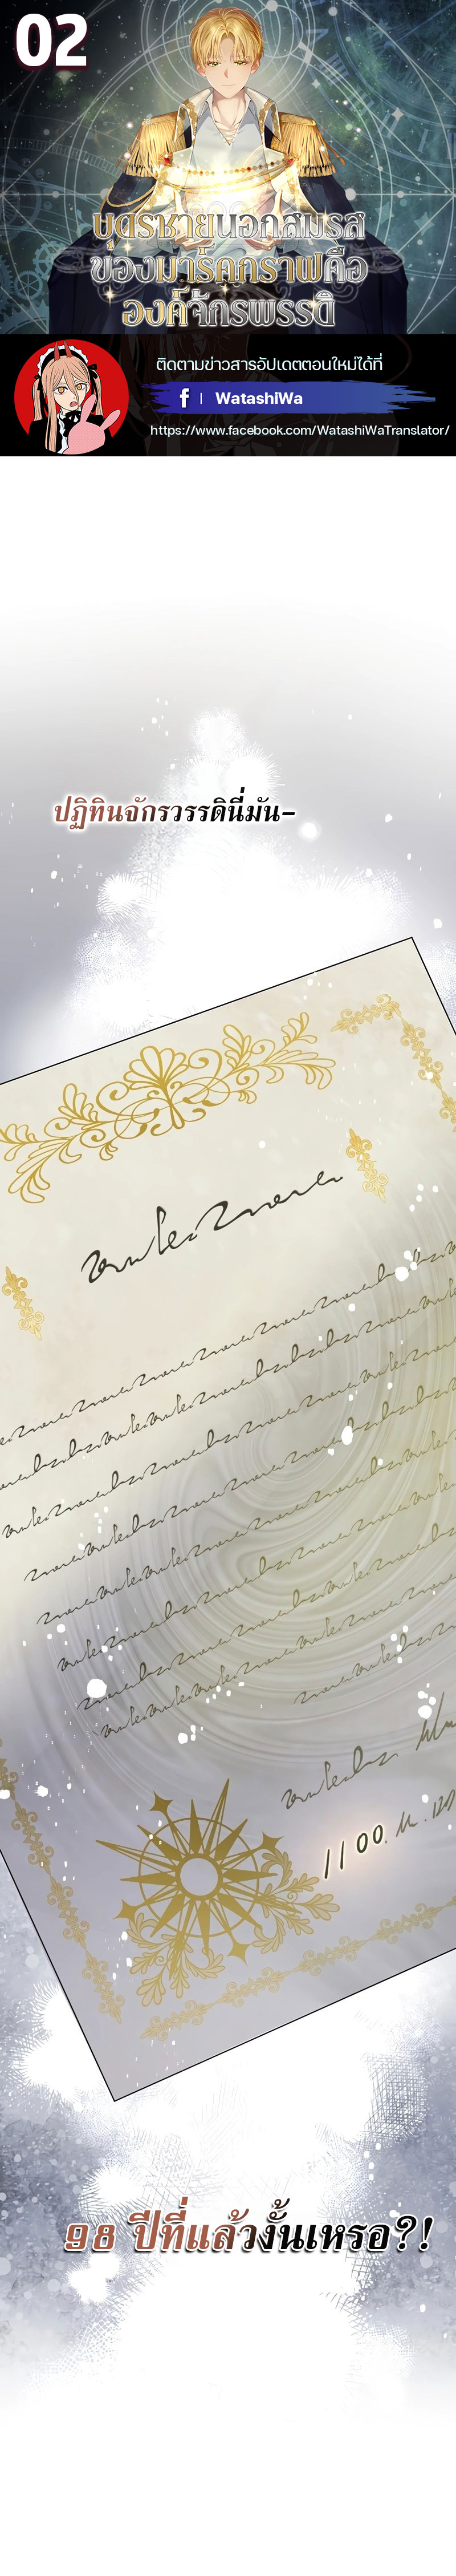 02
บุตรชายนอกสมรส
ของมาร์คกราฟคือ
องค์จักรพรรดิ
ติดตามข่าวสารอัปเดตตอนใหม่ได้ที่
f | WatashiWa
https://www.facebook.com/WatashiWaTranslator/
ปฏิทินจักรวรรดินี่มัน-
1100.
98 ปีที่แล้วงั้นเหรอ?!